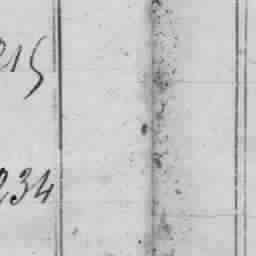 215
234